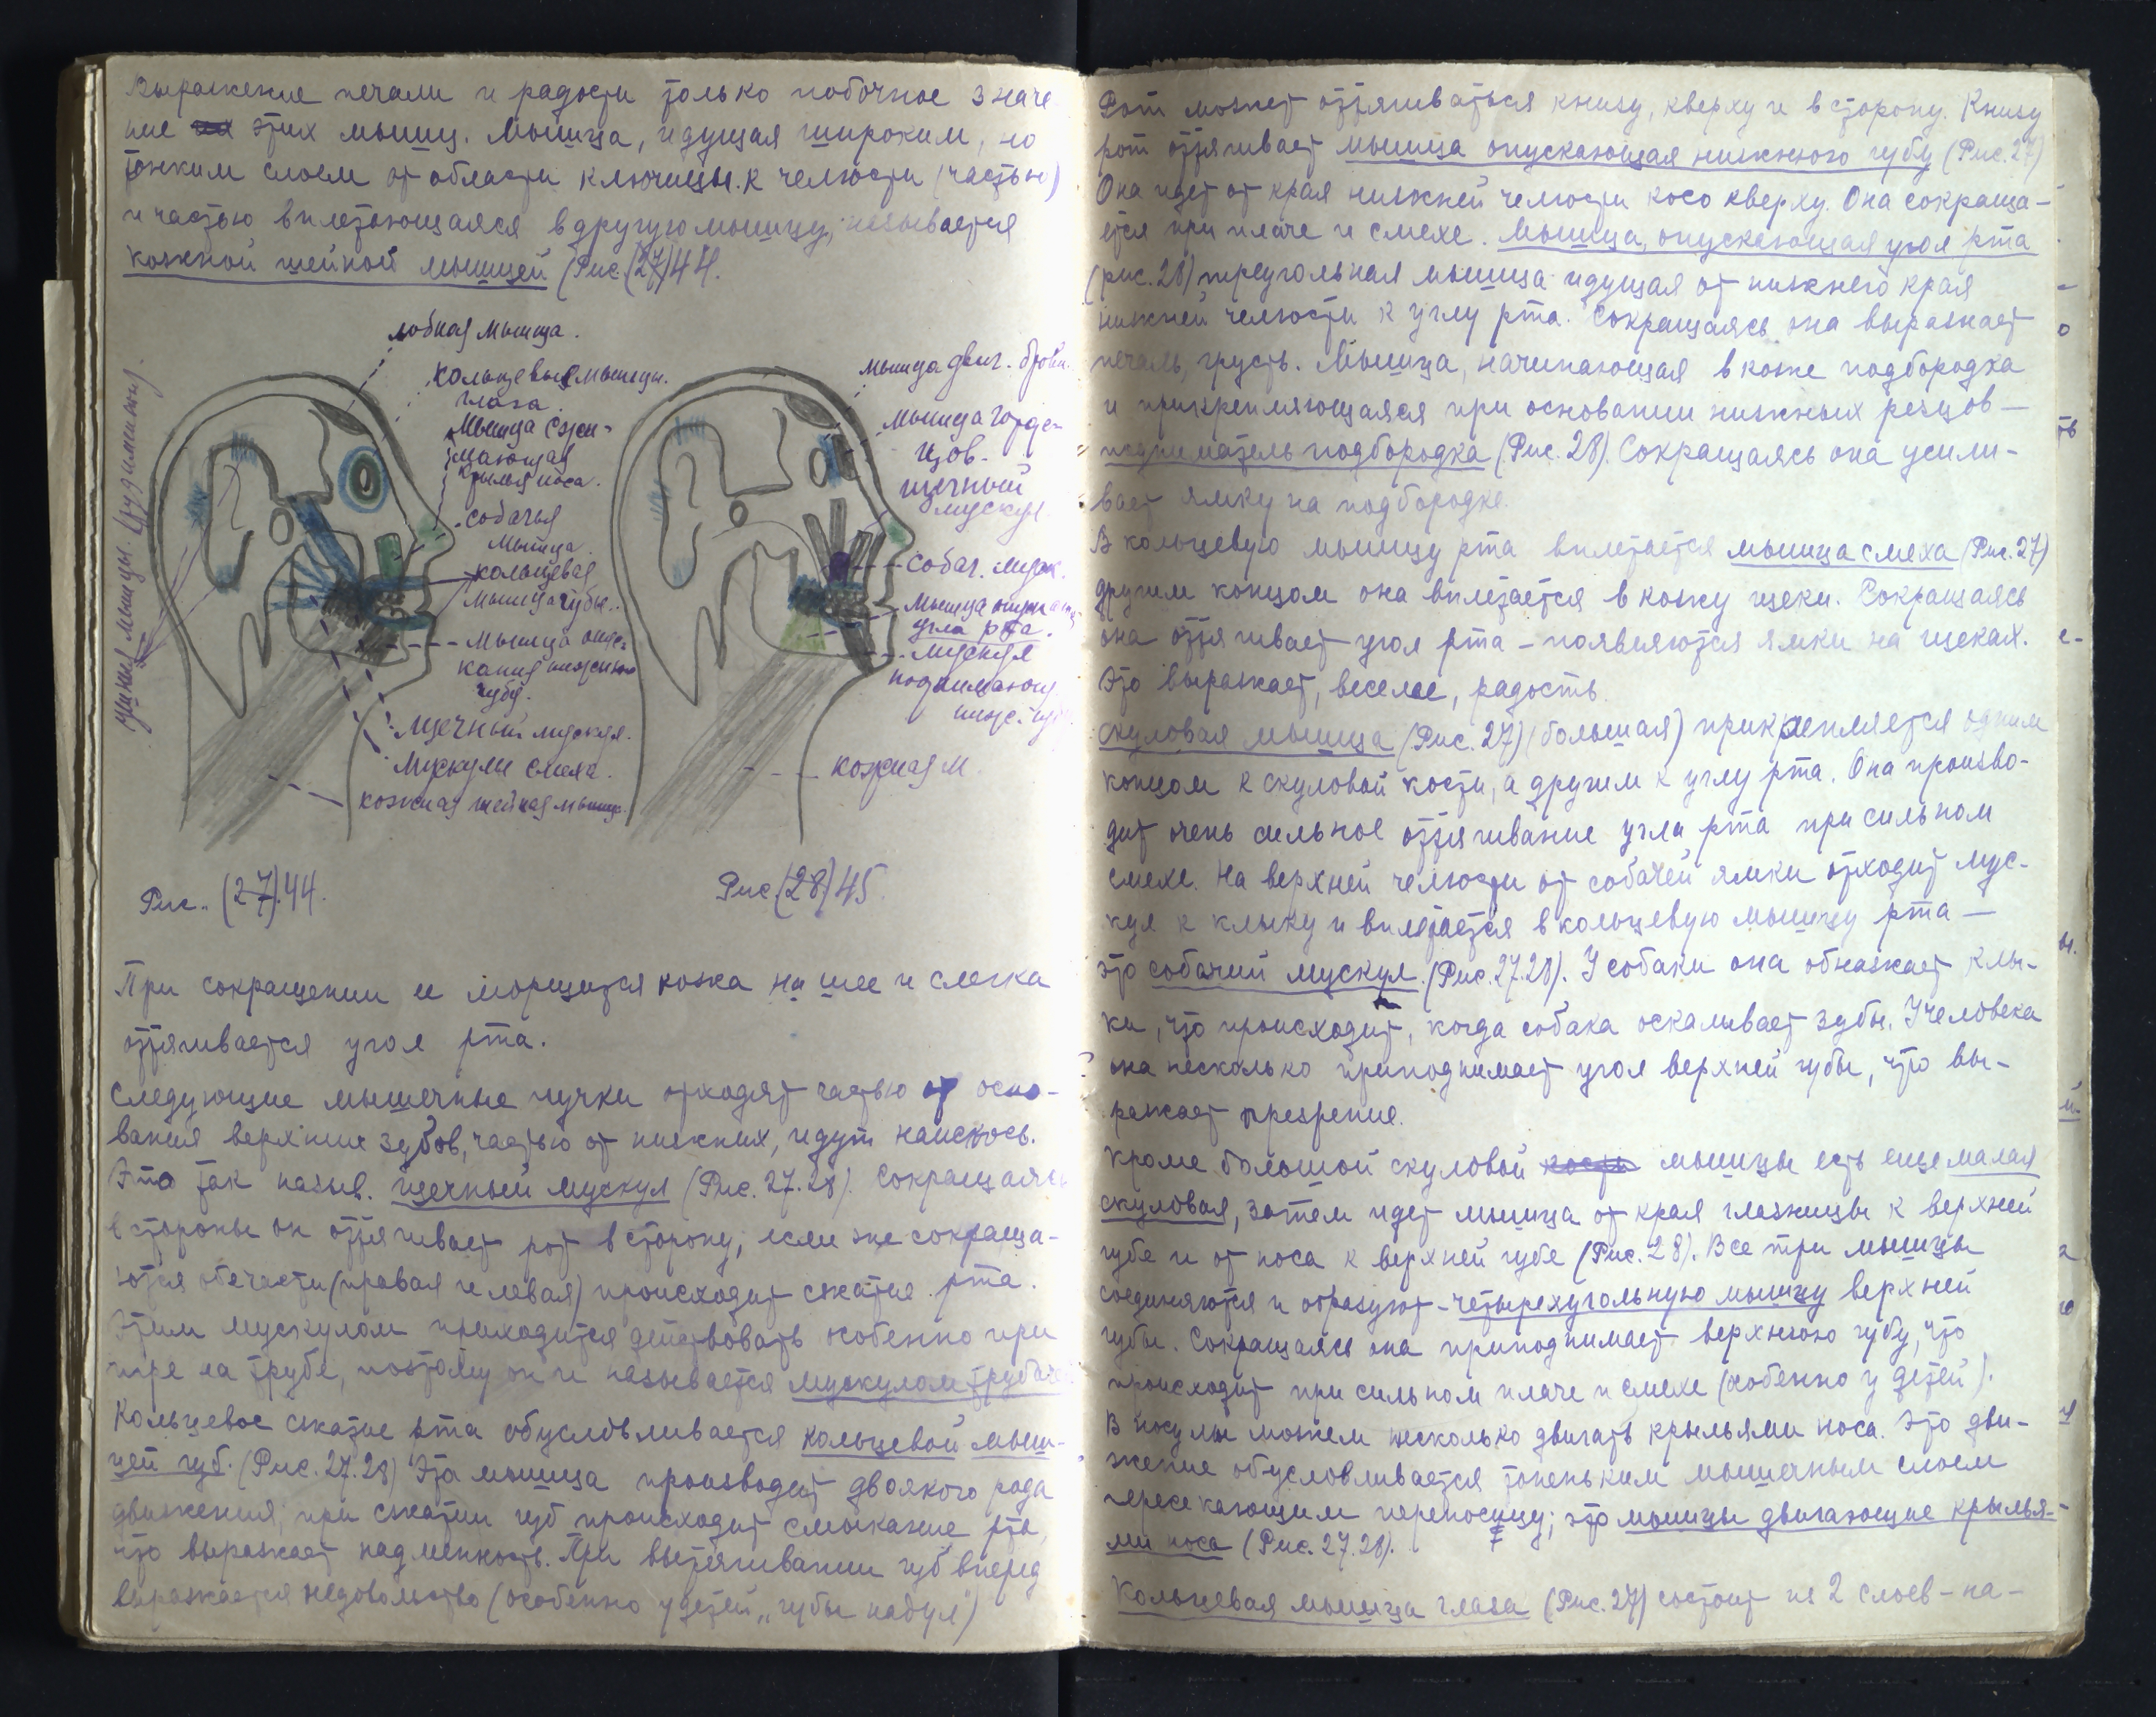 Выражение печали и радости только побочное значе
ние этих мышц. Мышца, идущая широким, но
тонким слоем от области ключицы к челюсти (частью)
и частью вплетающаяся в другую мышцу, называется
кожной шейной мышцей (Рис. (27) 44.
лобная мышца.
кольцевые мышцы.
глаза.
мышца сжи-
мающая
крылья носа.
собачья
мышца.
кольцевая
мышца губы.
мышца опус-
кания нижнею
губу.
щечный мускул.
мускулы смеха.
кожная шейная мышц.
ушные мышцы (рудименты)
мышца двиг. брови.
мышца гордe-
цов.
щечный
мускул
собач. муск.
мышца опускающ.
угла рта.
мускул
поднимающ.
кожная м.
Рис. (27).44.
Рис (28) 45.
При сокращении ее морщится кожа на шее и слегка
оттягивается угол рта.
Следующие мышечные пучки отходят частью от осно-
вания верхних зубов, частью от нижних, идут наискось.
Это так назыв. щечный мускул (Рис. 27.28). Сокращаясь
в стороны он оттягивает рот в сторону, если же сокраща-
ются обе части (правая и левая) происходит сжатие рта.
Этим мускулом приходится действовать особенно при
игре на трубе, поэтому он и называется мускулом трубачей
Кольцевое сжатие рта обусловливается кольцевой мыш-
цей губ. (Рис. 27.28) Эта мышца производит двоякого рода
движения; при сжатии губ происходит смыкание рта,
что выражает надменность. При вытягивании губ вперед
выражается недовольство (особенно у детей „губы надул")
Рот может оттягиваться книзу, кверху и в сторону. Книзу
рот оттягивает мышца опускающая нижнюю губу (Рис. 27)
Она идет от края нижней челюсти косо кверху. Она сокраща-
ется при плаче и смехе. Мышца, опускающая угол рта
(рис. 28) треугольная мышца идущая от нижнего края
нижней челюсти к углу рта. Сокращаясь она выражает
печаль, грусть. Мышца, начинающая в коже подбородка
и прикрепляющаяся при основании нижних резцов —
подниматель подбородка (Рис. 28). Сокращаясь она усили-
вает ямку на подбородке.
В кольцевую мышцу рта вплетается мышца смеха (Рис. 27)
другим концом она вплетается в кожу щеки. Сокращаясь
она оттягивает угол рта – появляются ямки на щеках.
Это выражает, веселье, радость.
Скуловая мышца (Рис. 27) (большая) прикрепляется одним
концом к скуловой кости, а другим к углу рта. Она произво-
дит очень сильное оттягивание угла рта при сильном
смехе. На верхней челюсти от собачей ямки отходит мус-
кул к клыку и вплетается в кольцевую мышцу рта —
это собачий мускул. (Рис. 27.28). У собаки она обнажает клы-
ки, что происходит, когда собака оскаливает зубы. У человека
она несколько приподнимает угол верхней губы, что вы-
ражает презрение.
Кроме большой скуловой кость мышцы есть еще малая
скуловая, затем идет мышца от края глазницы к верхней
губе и от носа к верхней губе (Рис. 28). Все три мышцы
соединяются и образуют – четырехугольную мышцу верхней
губы. Сокращаясь она приподнимает верхнюю губу, что
происходит при сильном плаче и смехе (особенно у детей).
В носу мы можем несколько двигать крыльями носа. Это дви-
жение обусловливается тоненьким мышечным слоем
пересекающим переносицу; это мышцы двигающие крылья-
ми носа (Рис. 27.28).
Кольцевая мышца глаза (Рис. 27) состоит из 2 слоев – на-